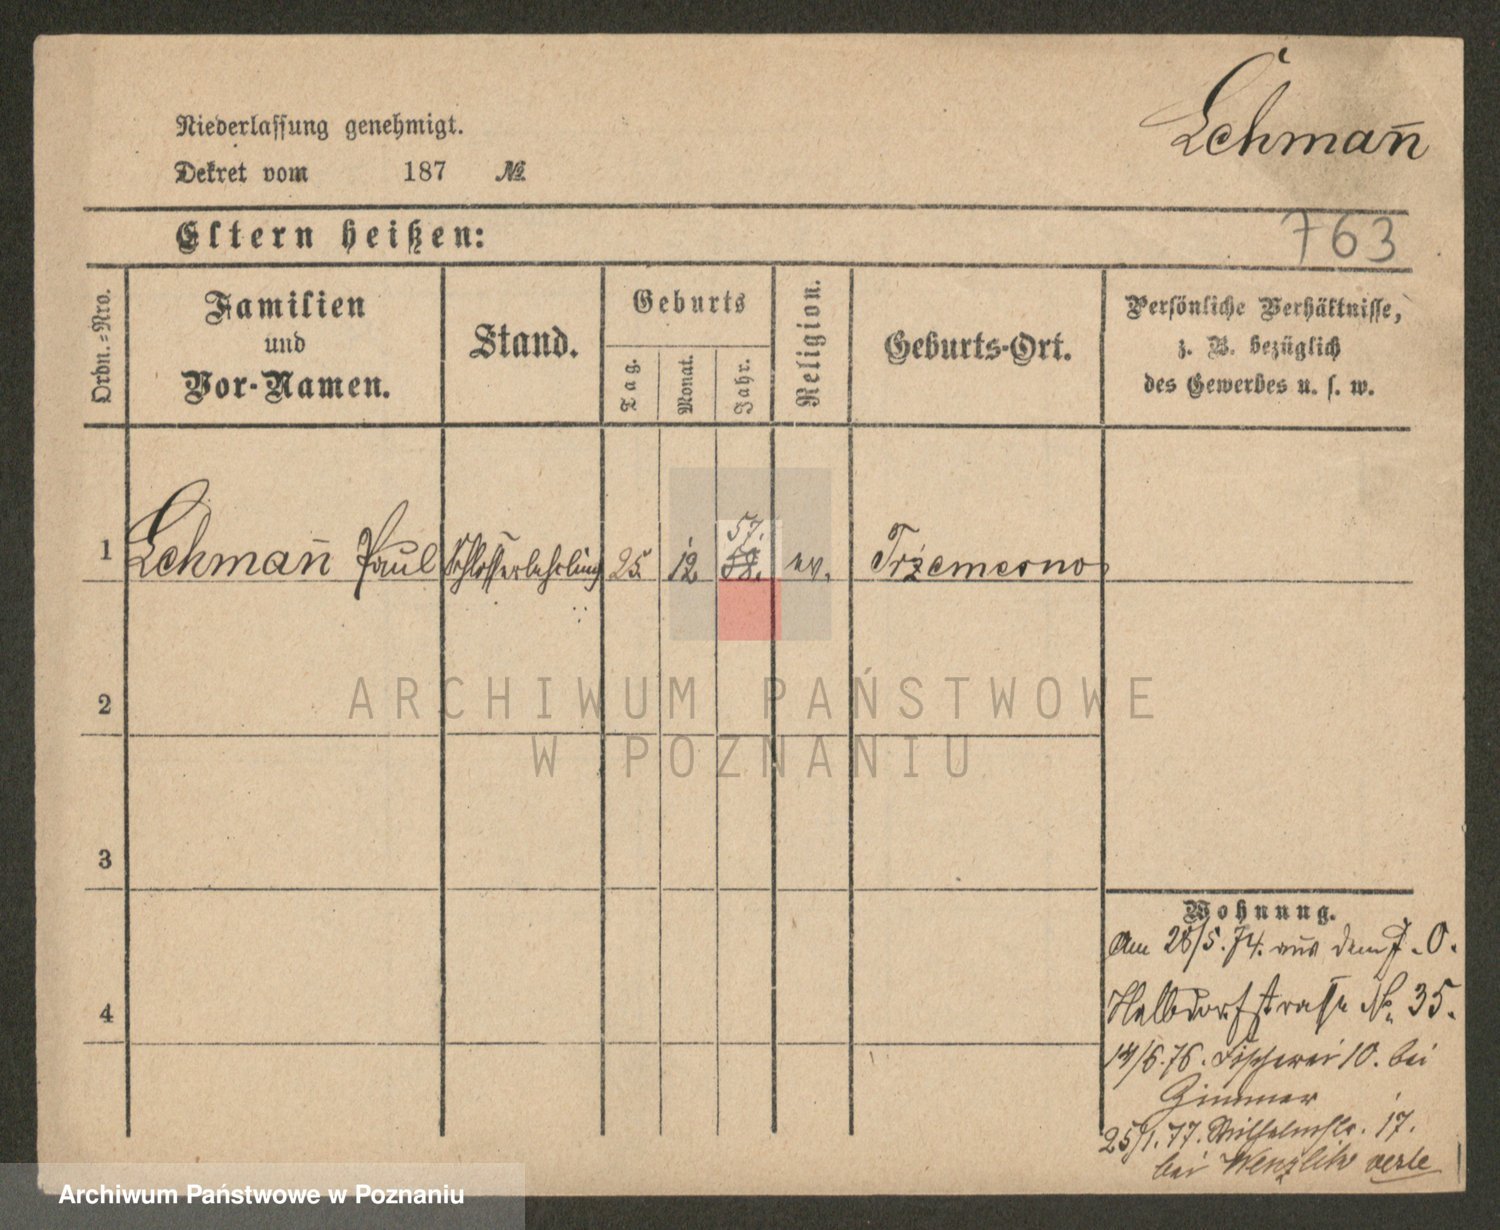 Lehmañ
Niederlassung genehmigt.
Dekret vom 187 №
763
Eltern heißen:
Ordn.-Nro.
Familien
und
Vor-Namen.
Stand.
Geburts
Tag.
Monat.
Jahr.
Religion.
Geburts-Ort.
Persönliche Verhältnisse,
z. B. bezüglich
des Gewerbes u. s. w.
57.
1 Lehmañ Paul Schlosserlehrling 25. 12. 58. ev. Tržemesno
2
3
4
ARCHIWUM PAŃSTWOWE
W POZNANIU
Wohnung.
Am 28/5.74. aus dem P.O.
Halbdorfstrasse No. 35.
14/6.76. Fischerei 10. bei
Zimmer
25/1.77. Wilhelmstr. 17.
bei Wenzlik
Archiwum Państwowe w Poznaniu